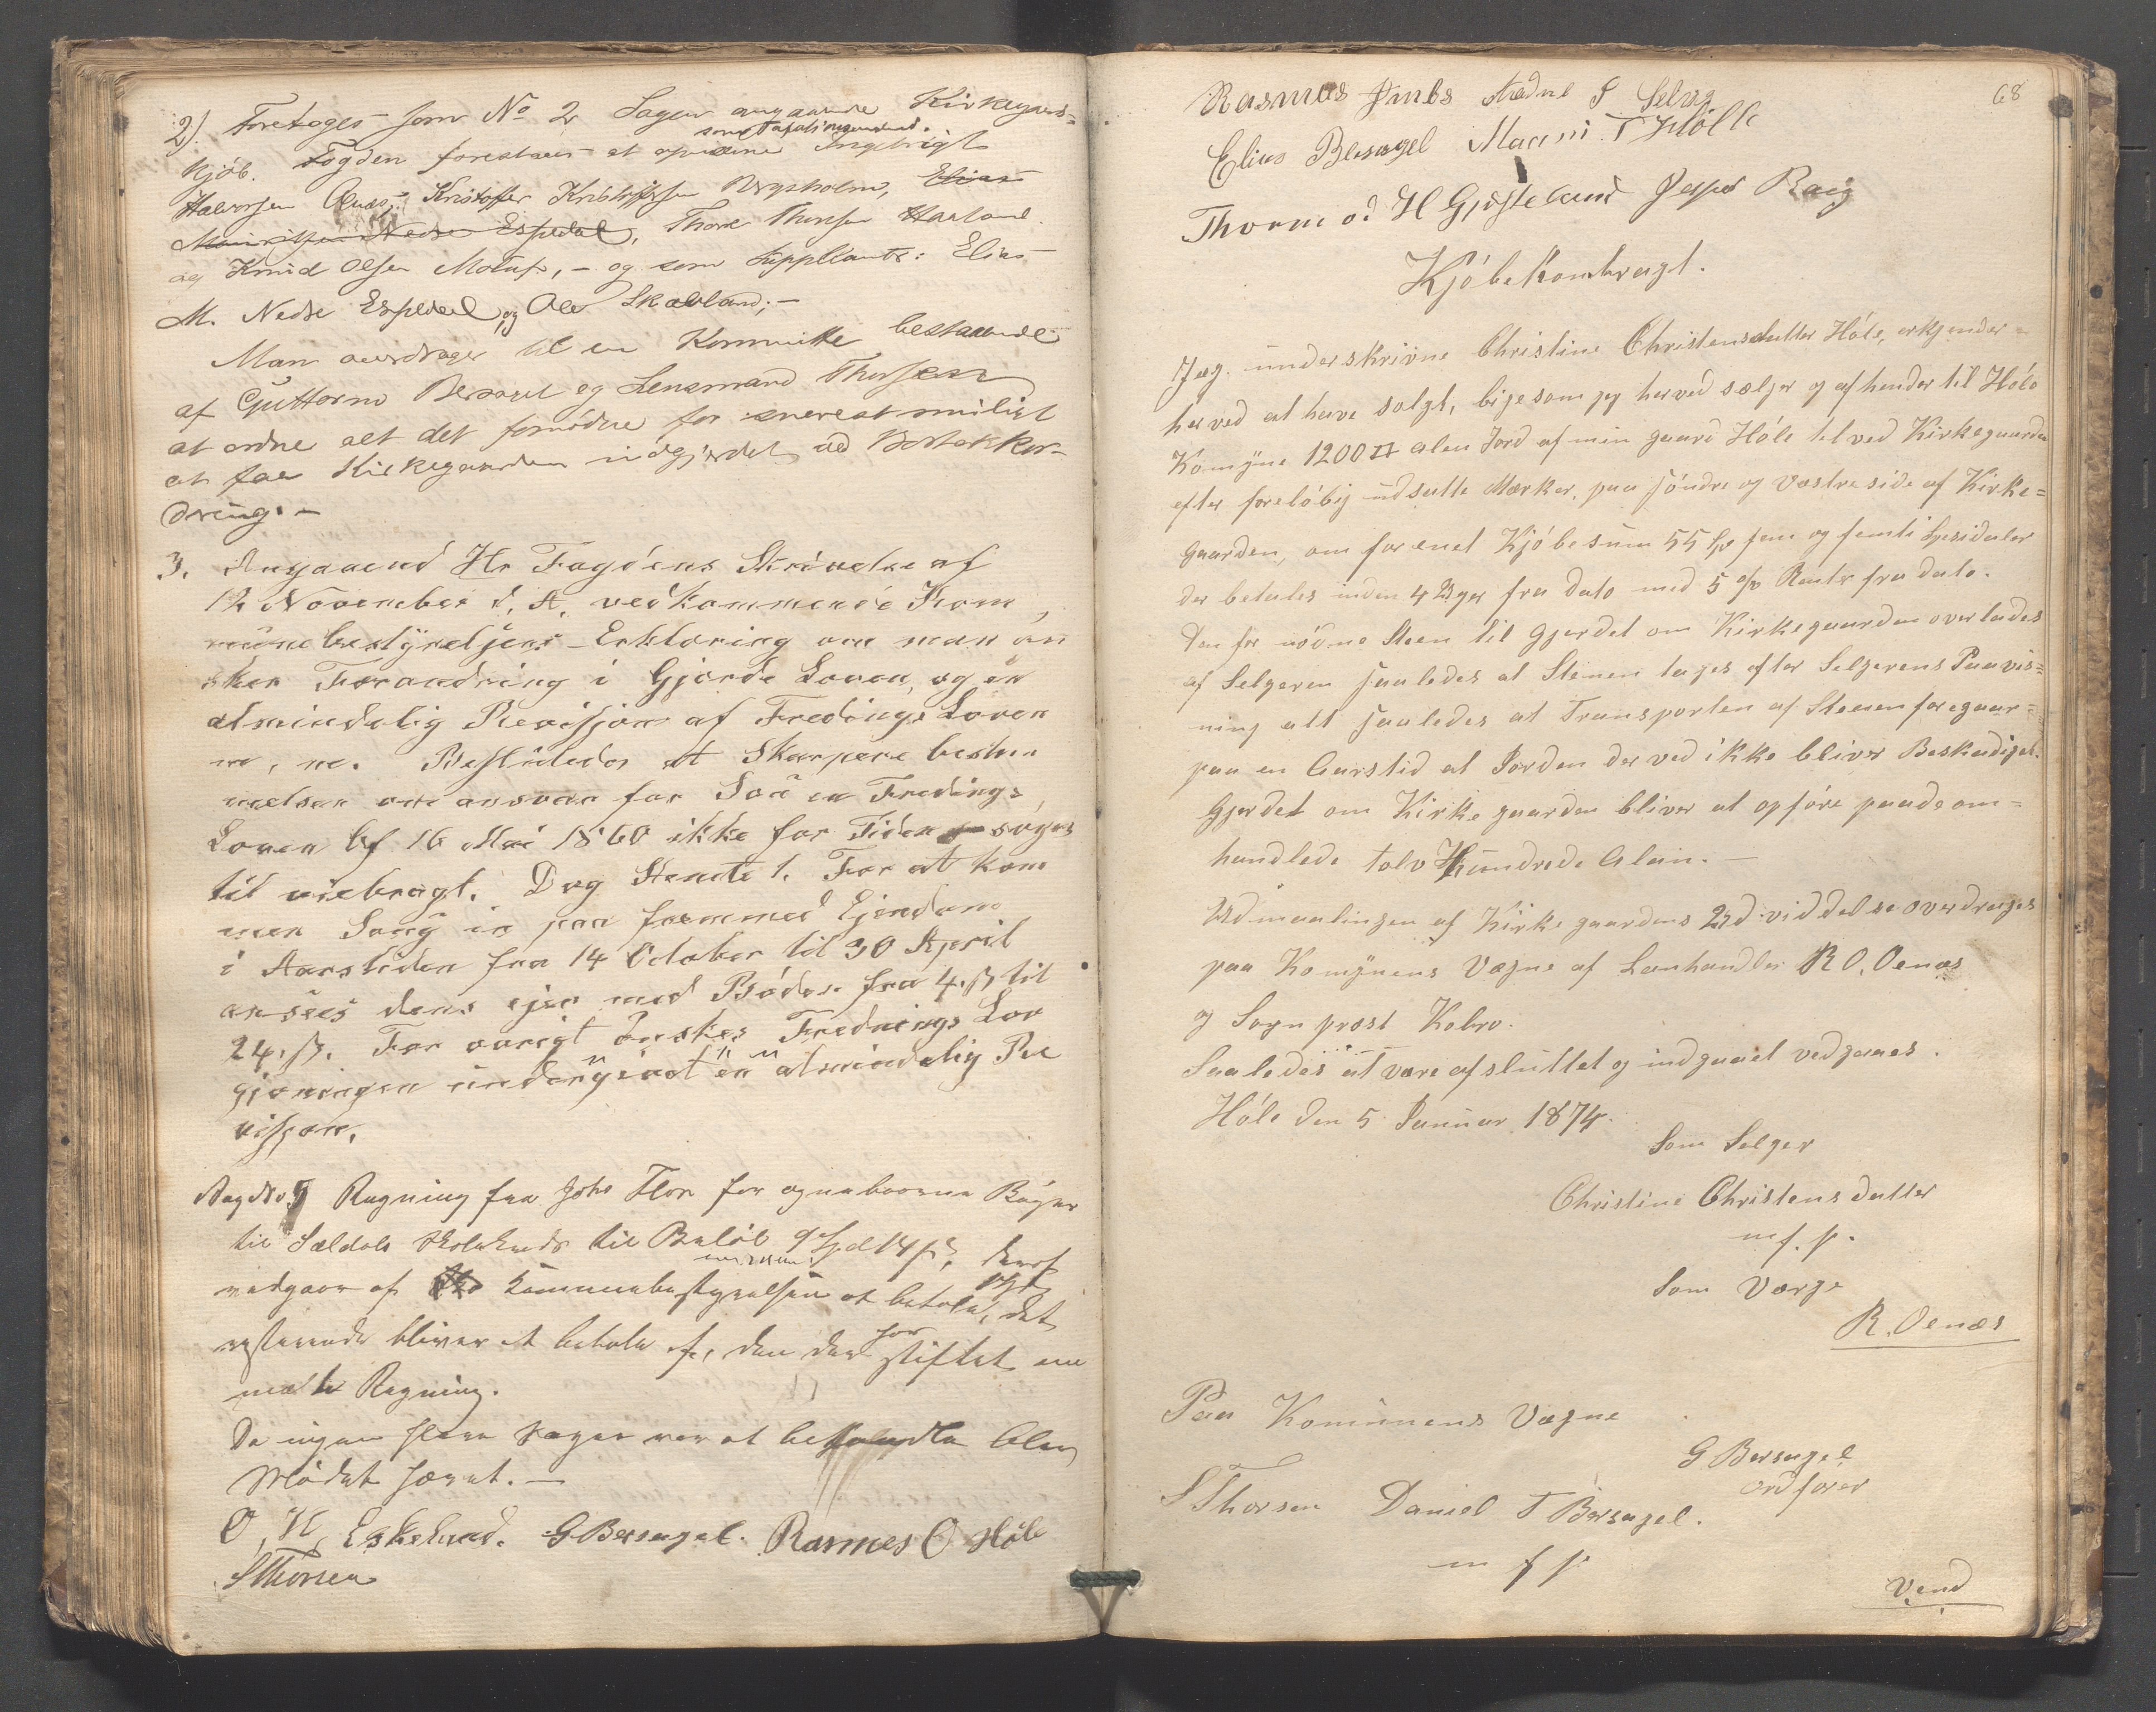 2). Foretoges som No 2 Sagen angaaende Kirkegaards=
kjöb. Fogden forestaaer at opnævne som Taxationsmænd. Ingebrigt
Halvorsen Oenæs, Kristoffer Kristoffersen Bergsholm, Elias
Mauritzen Nedre Espedal, Thore Thorsen Haaland
og Knud Olsen Molaug, - og som Suppleanter: Elias
M. Nedre Espedal, og Ole Skavland; -
Man overdrager til en Kommitte bestaaende
af Guttorm Bersagel og Lensmand Thorsen
at ordne alt det fornödne for snarest muligt
at faa Kirkegaarden indgjerdet ved
dring. -
3. Angaaend Hr Fogdens Skrivelse af
12 November d. A. vedkommende Kom
munebestyrelsens Erklæring om man øn
sker Forandring i Gjerde Loven, og en
almindelig Revissjon af Frednings Loven
m, m. Besluttedes at Skarpere bestem
melser om ansvar for Sou en Frednings
Loven af 16 Mai 1860 ikke for Tiden søges
til veiebragt. Dog Stemte 1. For at kom
mer Soug in paa fremmed Ejendom
i Aarstiden fra 14 October til 30 April
ansees dens ejer med Böder fra 4 ß til
24 ß. For øvrigt ønskes Frednings Lov
givningen undergivet en almindelig Re
vissjon.
Regning fra Johs Flor for Bøger
til Sældals Skolekreds til Beløb 9 Spd 14 ß, deraf
vedgaar af Kommunebestyrelsen at betale, det
resterende bliver at betale af, den der har stiftet om
meldte Regning.
Da ingen flere Sager var at behandle blev
Mödet hævet. -
O. H. Eskeland. G Bersagel. Rasmus O Høle
S Thorsen
68
Rasmus Selvig
Elias Bersagel T Hölle
Thormod H Gjøsteland Jesper Raeg
Kjöbekontragt.
Jeg underskrivne Christine Christensdatter Høle, erkjender
herved at have solgt, ligesom jeg herved sælger og afhender til Høle
Komune 1200 □ alen Jord af min gaard Høle tilved Kirkegaarden
efter foreløbig udsatte Mærker, paa søndre og vestre side af Kirke=
gaarden, om forenet Kjøbesum 55 Sp fem og femti Spesidaler
der betales inden 4 Uger fra dato med 5 o/o Rente fra dato.
Den fornødne Steen til Gjerdet om Kirkegaarden overlades
af Selgeren saaledes at Stenen tages efter Selgerens Paavis=
ning alt saaledes at Transporten af Stenen foregaar=
paa en Aarstid at Jorden derved ikke bliver Beskadiget.
Gjerdet om Kirkegaarden bliver at opføre paa de om=
handlede tolv Hundrede Alein. -
Udmaalingen af Kirkegaardens Udviddelse overdrages
paa Komunens Vægne af Lanhandler R O. Oenæs
og Sogn prest Kobro.
Saaledes at være afsluttet og indgaaet vedgaaes.
Høle den 5 Januar 1874.
Som Selger
Christine Christensdatter
m. f. p.
Som Verge
R. Oenæs
Paa Komunens Vægne
G Bersagel
ordfører
S Thorsen Daniel T Bersagel.
m f p
Vend